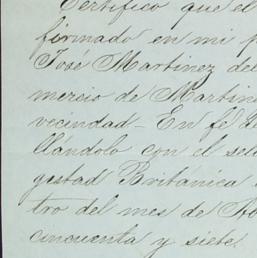 Certifico que el
firmado en mi p
José Martinez del
mercio de Martin
vecindad - En fé d
llandolo con el sel
gestad Britanica
tro del mes de
cincuenta y siete.